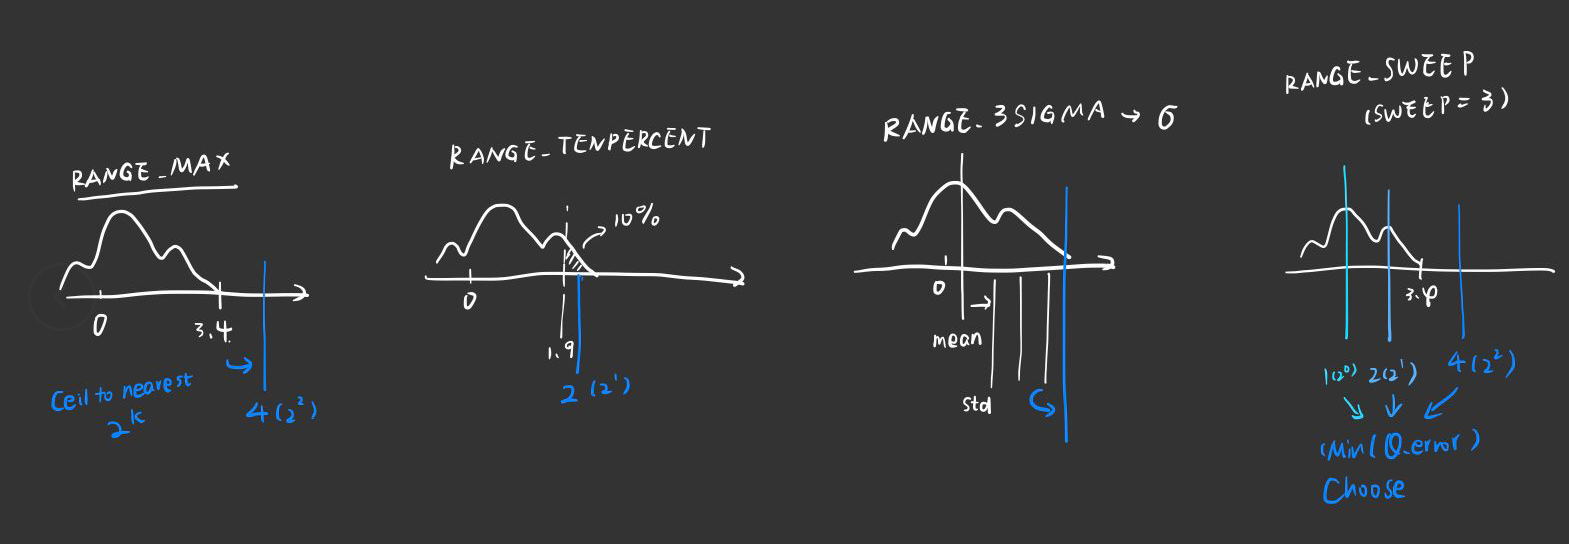 RANGE_MAX
0
3.4
Ceil to nearest
2^k
4 (2^2)
RANGE_TENPERCENT
10%
0
1.9
2 (2^1)
RANGE_3SIGMA → σ
0
mean
std
RANGE_SWEEP
(SWEEP = 3)
3.4
1(2^0) 2(2^1) 4(2^2)
(Min(Q_error)
Choose